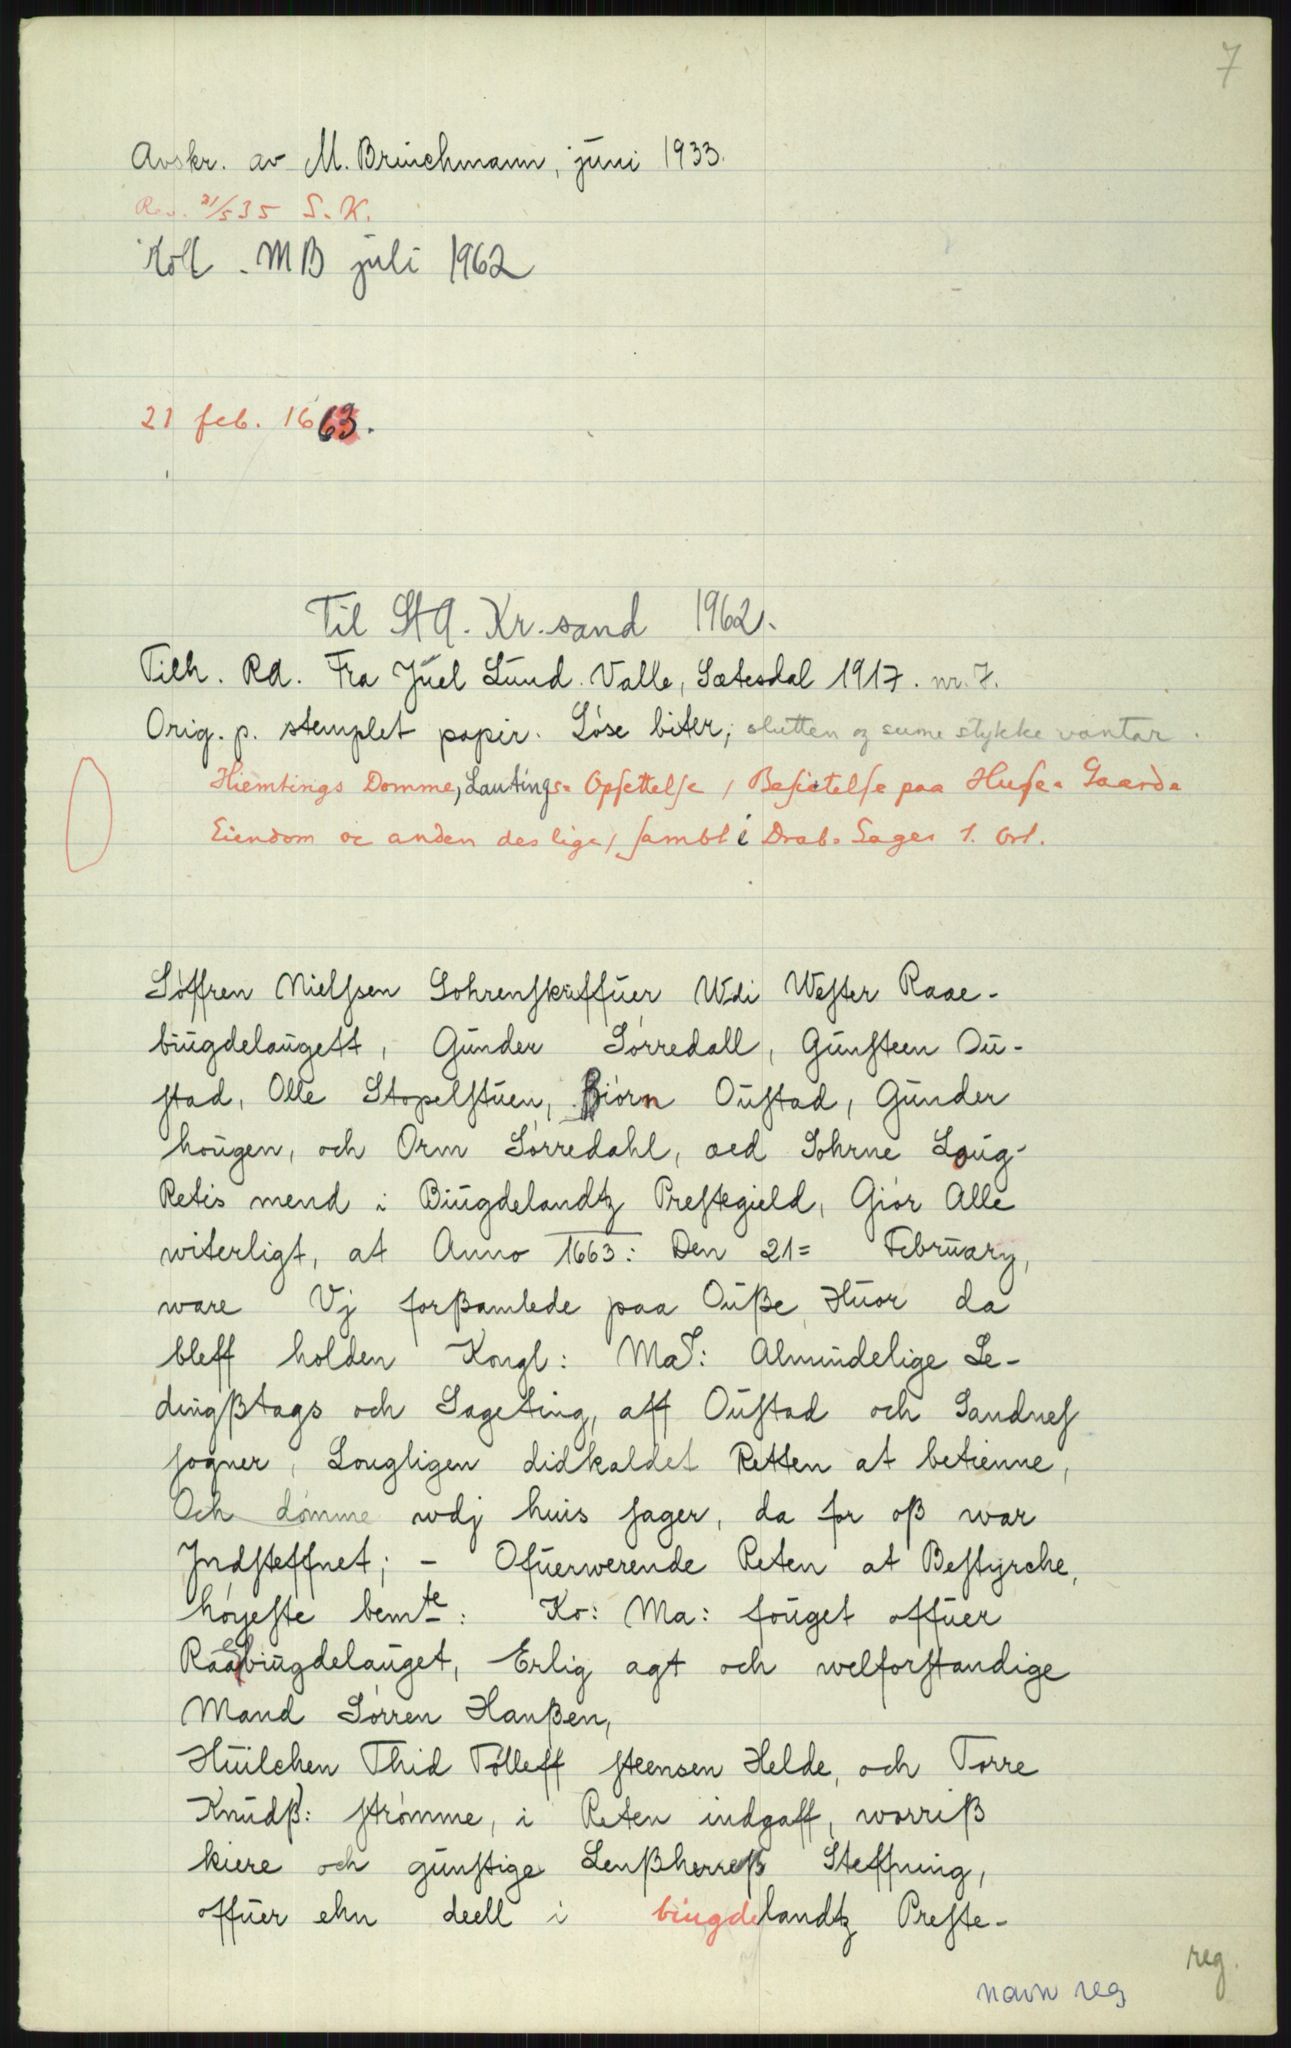 7
Avskr. av M. Brinchmann, juni 1933.
Rev. 21/5 35 S. K.
Koll. MB juli 1962
21 feb. 1663.
Til StA. Kr.sand 1962.
Tilh. RA. Fra Juel Lund. Valle, Sætesdal 1917. nr. 7.
Orig. p. stemplet papir. Løse biter; slutten og sume stykke vantar.
Hiemtings Domme, Lautings= Opsettelse / Besictelse paa Huse= Gaard=
Eiendom oc anden deslige / sambt i Drab= Sager 1. Ort.
Søffren Nielssen Sohrenskriffuer Udi Wester Raae-
biugdelaugett, Gunder Sørredall, Gunsteen Ou-
stad, Olle Stopelstuen, Biørn Oustad, Gunder
hougen, och Orm Sørredahl, æd Sohrne Laug-
Retis mend i Biugdelandtz Prestegield, Giør Alle
witerligt, at Anno 1663: Den 21= February,
ware Vj forßamlede paa Ouße Huor da
bleff holden Kongl: Mat: Almindelige Le-
dingßtags och Sageting, aff Oustad och Sandnes
sogner, Lougligen didkaldet Retten at betienne,
Och dømme wdj huis sager, da for oß war
Jndsteffnet; - Ofuerwerende Reten at Bestyrche,
høyeste bemte: Ko: Ma: fouget offuer
Raaebiugdelauget, Erlig agt och welforstandige
Mand Sørren Hanßen,
Huilchen Thid Tølleff steensen Helde, och Torre
Knudß: strømme, i Reten indgaff, worriß
kiere och gunstige Lenßherreß Steffning,
offuer ehn deell i biugdelandtz Preste-
reg.
navn reg